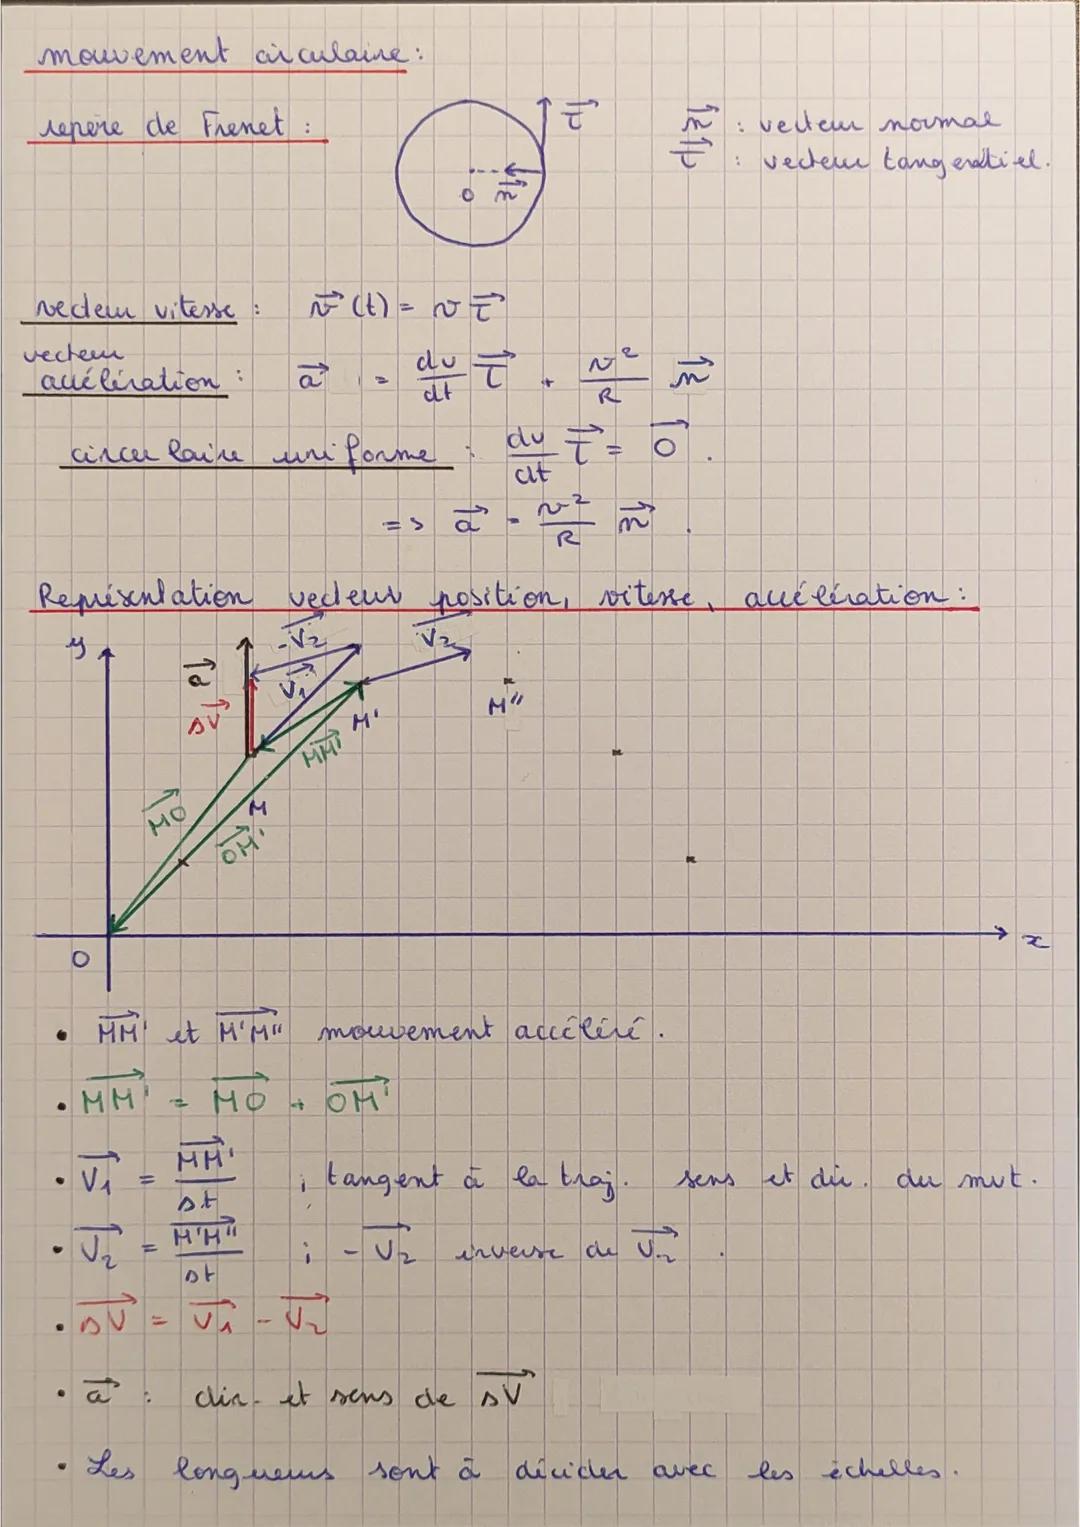 mouvement circulaire :
repère de Frenet :
τ⃗
n⃗ : vecteur normal
τ⃗ : vecteur tangentiel.
O n⃗
vecteur vitesse : v⃗ (t) = v τ⃗
vecteur
accélération : a⃗ = dv/dt τ⃗ + v²/R n⃗
circulaire uniforme : dv/dt τ⃗ = 0⃗ .
=> a⃗ = v²/R n⃗ .
Représentation vecteur position, vitesse, accélération :
y
-V₂⃗
V₂⃗
a⃗
V₁⃗
ΔV⃗
M'
M"
MM'⃗
MO⃗
M
OM'⃗
O
x
• MM'⃗ et M'M"⃗ mouvement accéléré.
• MM'⃗ = MO⃗ + OM'⃗
• V₁⃗ = MM'⃗/Δt ; tangent à la traj. sens et dir. du mvt.
• V₂⃗ = M'M"⃗/Δt ; -V₂⃗ inverse de V₂⃗ .
• ΔV⃗ = V₁⃗ - V₂⃗
• a⃗ : dir. et sens de ΔV⃗
• Les longueurs sont à décider avec les échelles.